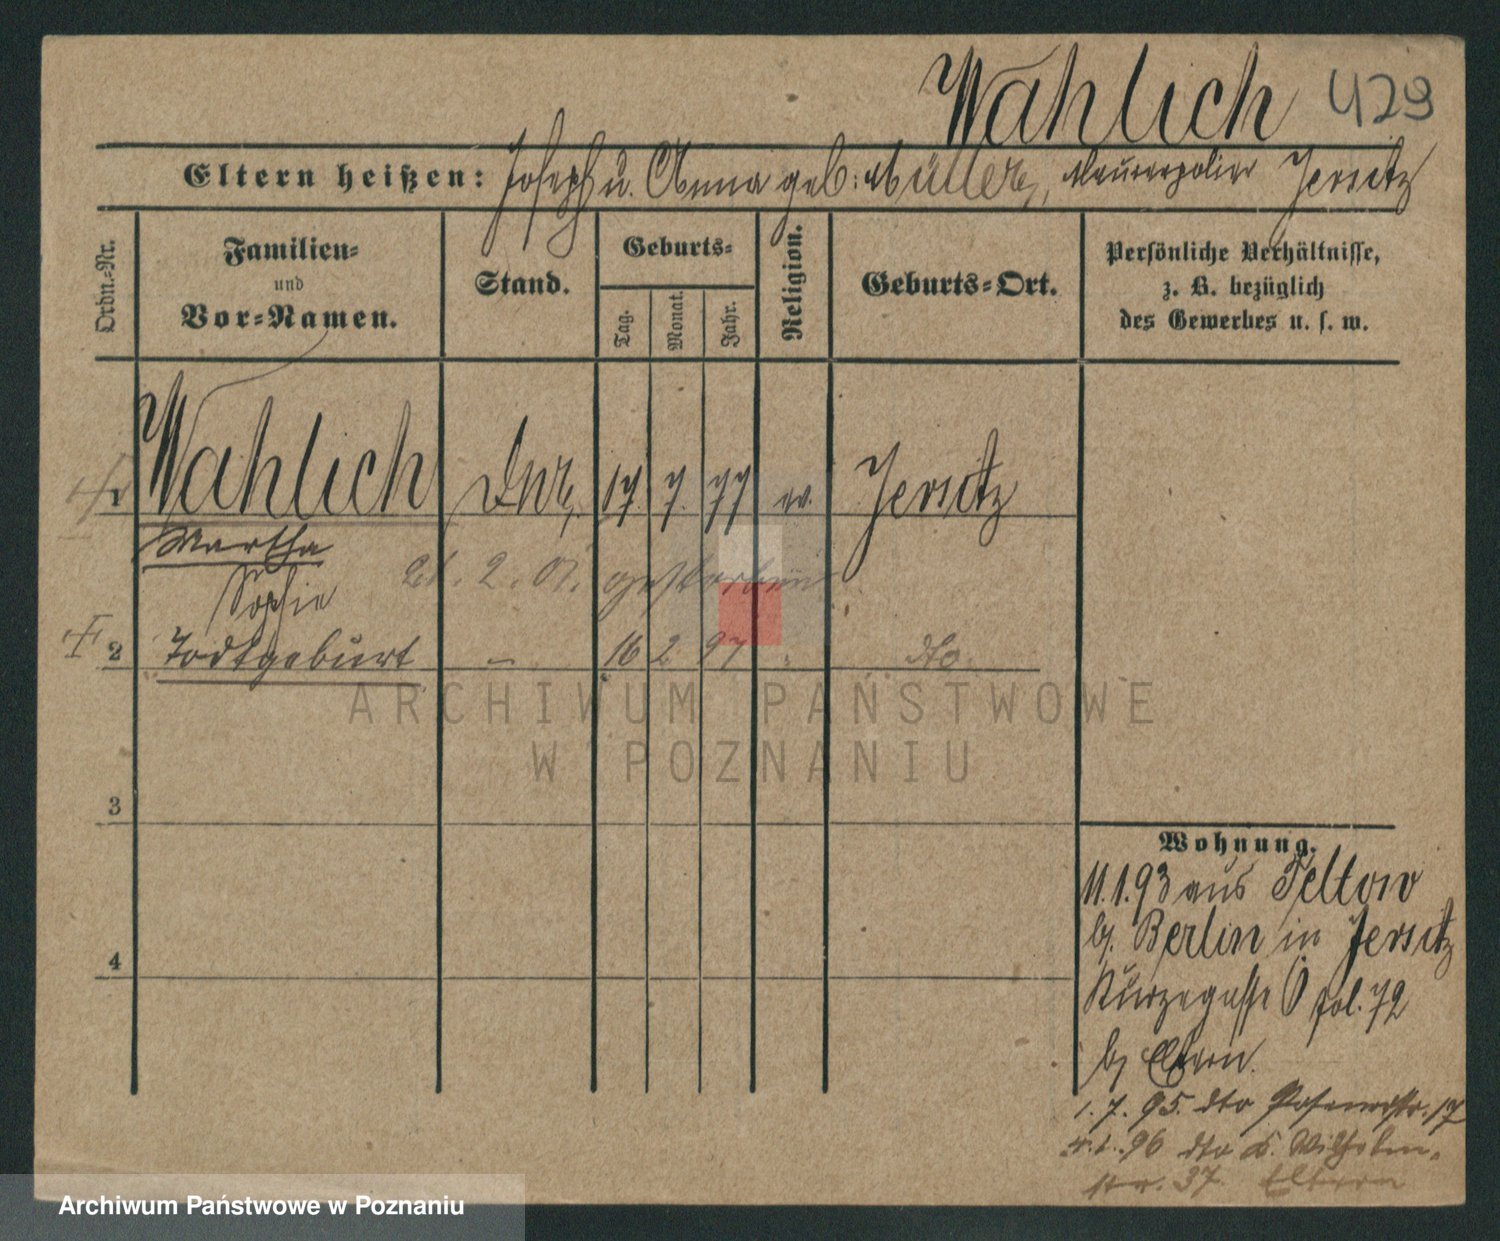 Wahlich 429
Eltern heißen: Joseph u. Anna geb: Müller, Maurerpolier Jersitz
Ordn.-Nr.
Familien-
und
Vor-Namen.
Stand.
Geburts-
Tag.
Monat.
Jahr.
Religion.
Geburts-Ort.
Persönliche Verhältnisse,
z. B. bezüglich
des Gewerbes u. s. w.
1 Wahlich 17. 7. 77 Jersitz
Martha
21. 2. 01. gestorben
Sophie
2 Todtgeburt – 16 2 97 dto.
3
4
Wohnung.
11.1.93 aus Teltow
b. Berlin in Jersitz
Kurzegasse 6 fol. 72
b Eltern.
1. 7. 95. dto Posenerstr. 17
96 dto K. Wilhelm-
str. 37. Eltern
ARCHIWUM PAŃSTWOWE
W POZNANIU
Archiwum Państwowe w Poznaniu